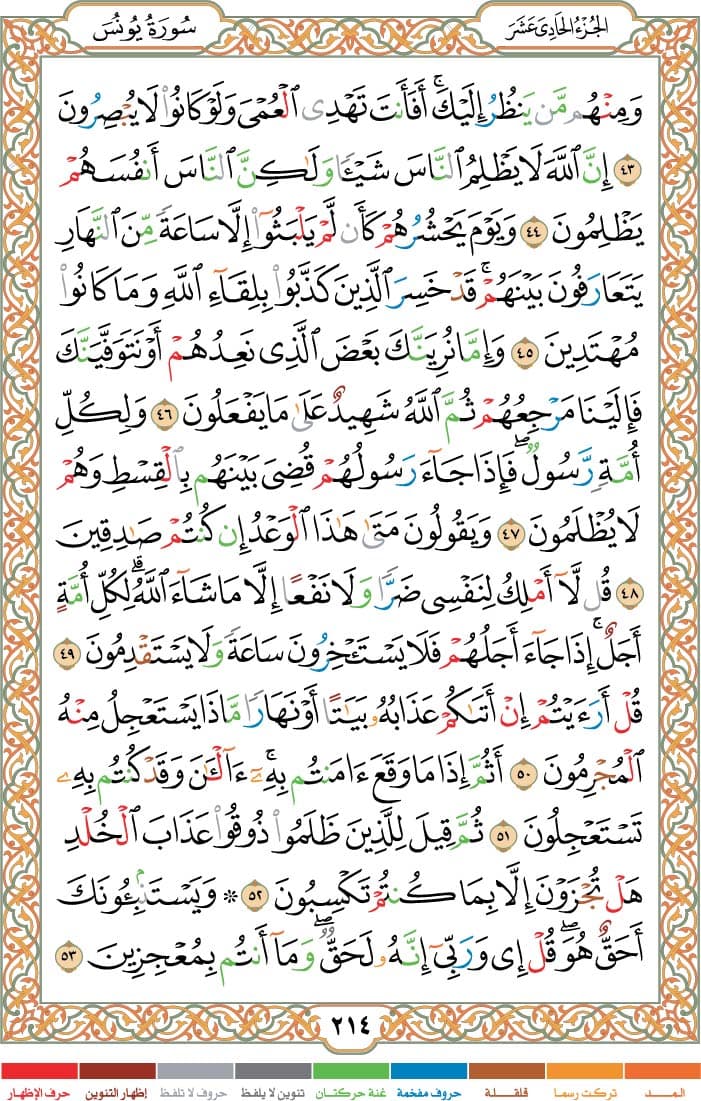 الجزء الحادى عشر
سورة يونس
وَمِنْهُم مَّن يَنظُرُ إِلَيْكَ ۚ أَفَأَنتَ تَهْدِى ٱلْعُمْىَ وَلَوْ كَانُوا۟ لَا يُبْصِرُونَ
٤٣ إِنَّ ٱللَّهَ لَا يَظْلِمُ ٱلنَّاسَ شَيْـًٔا وَلَـٰكِنَّ ٱلنَّاسَ أَنفُسَهُمْ
يَظْلِمُونَ ٤٤ وَيَوْمَ يَحْشُرُهُمْ كَأَن لَّمْ يَلْبَثُوٓا۟ إِلَّا سَاعَةً مِّنَ ٱلنَّهَارِ
يَتَعَارَفُونَ بَيْنَهُمْ ۚ قَدْ خَسِرَ ٱلَّذِينَ كَذَّبُوا۟ بِلِقَآءِ ٱللَّهِ وَمَا كَانُوا۟
مُهْتَدِينَ ٤٥ وَإِمَّا نُرِيَنَّكَ بَعْضَ ٱلَّذِى نَعِدُهُمْ أَوْ نَتَوَفَّيَنَّكَ
فَإِلَيْنَا مَرْجِعُهُمْ ثُمَّ ٱللَّهُ شَهِيدٌ عَلَىٰ مَا يَفْعَلُونَ ٤٦ وَلِكُلِّ
أُمَّةٍ رَّسُولٌ ۖ فَإِذَا جَآءَ رَسُولُهُمْ قُضِىَ بَيْنَهُم بِٱلْقِسْطِ وَهُمْ
لَا يُظْلَمُونَ ٤٧ وَيَقُولُونَ مَتَىٰ هَـٰذَا ٱلْوَعْدُ إِن كُنتُمْ صَـٰدِقِينَ
٤٨ قُل لَّآ أَمْلِكُ لِنَفْسِى ضَرًّا وَلَا نَفْعًا إِلَّا مَا شَآءَ ٱللَّهُ ۗ لِكُلِّ أُمَّةٍ
أَجَلٌ ۚ إِذَا جَآءَ أَجَلُهُمْ فَلَا يَسْتَـْٔخِرُونَ سَاعَةً وَلَا يَسْتَقْدِمُونَ ٤٩
قُلْ أَرَءَيْتُمْ إِنْ أَتَىٰكُمْ عَذَابُهُۥ بَيَـٰتًا أَوْ نَهَارًا مَّاذَا يَسْتَعْجِلُ مِنْهُ
ٱلْمُجْرِمُونَ ٥٠ أَثُمَّ إِذَا مَا وَقَعَ ءَامَنتُم بِهِۦٓ ۚ ءَآلْـَٔـٰنَ وَقَدْ كُنتُم بِهِۦ
تَسْتَعْجِلُونَ ٥١ ثُمَّ قِيلَ لِلَّذِينَ ظَلَمُوا۟ ذُوقُوا۟ عَذَابَ ٱلْخُلْدِ
هَلْ تُجْزَوْنَ إِلَّا بِمَا كُنتُمْ تَكْسِبُونَ ٥٢ ۞ وَيَسْتَنۢبِـُٔونَكَ
أَحَقٌّ هُوَ ۖ قُلْ إِى وَرَبِّىٓ إِنَّهُۥ لَحَقٌّ ۖ وَمَآ أَنتُم بِمُعْجِزِينَ ٥٣
٢١٤
المـــد تركت رسما قلقـــلة حروف مفخمة غنة حركتان تنوين لا يلفظ حروف لا تلفظ إظهار التنوين حرف الإظهار